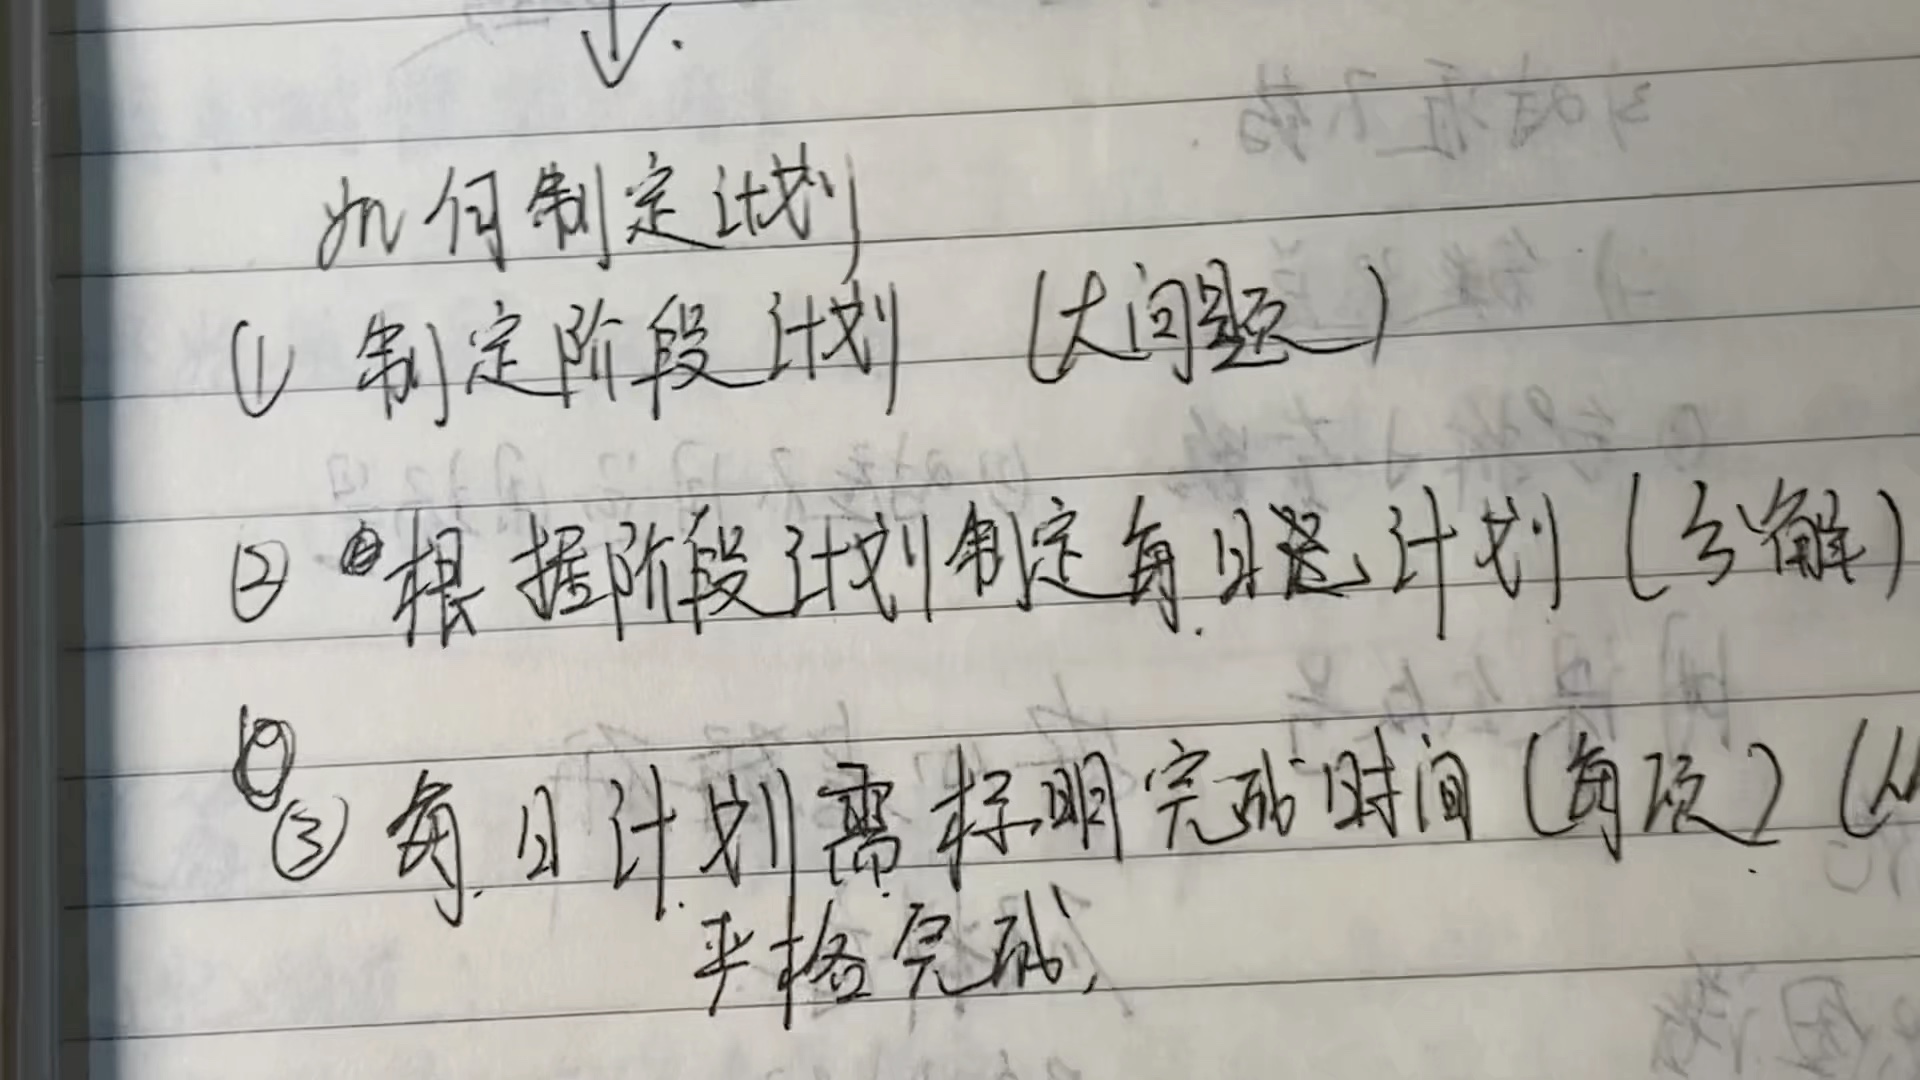 如何制定计划
① 制定阶段计划 (大问题)
② 根据阶段计划制定每日计划 (分解)
③ 每日计划需标明完成时间 (每项) (
严格完成,